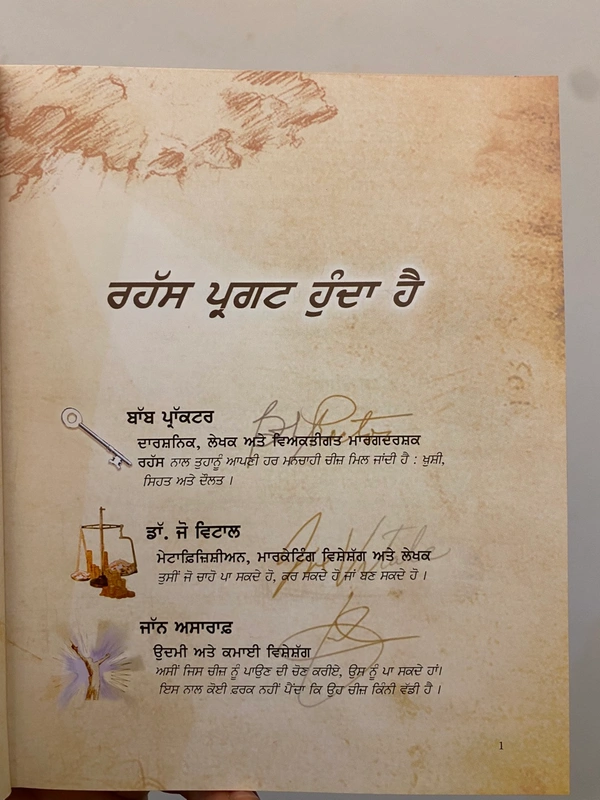 ਰਹੱਸ ਪ੍ਰਗਟ ਹੁੰਦਾ ਹੈ
ਬਾੱਬ ਪ੍ਰਾੱਕਟਰ
ਦਾਰਸ਼ਨਿਕ, ਲੇਖਕ ਅਤੇ ਵਿਅਕਤੀਗਤ ਮਾਰਗਦਰਸ਼ਕ
ਰਹੱਸ ਨਾਲ ਤੁਹਾਨੂੰ ਆਪਣੀ ਹਰ ਮਨਚਾਹੀ ਚੀਜ਼ ਮਿਲ ਜਾਂਦੀ ਹੈ : ਖ਼ੁਸ਼ੀ,
ਸਿਹਤ ਅਤੇ ਦੌਲਤ ।
ਡਾੱ. ਜੋ ਵਿਟਾਲ
ਮੇਟਾਫ਼ਿਜ਼ਿਸ਼ੀਅਨ, ਮਾਰਕੇਟਿੰਗ ਵਿਸ਼ੇਸ਼ੱਗ ਅਤੇ ਲੇਖਕ
ਤੁਸੀਂ ਜੋ ਚਾਹੋ ਪਾ ਸਕਦੇ ਹੋ, ਕਰ ਸਕਦੇ ਹੋ ਜਾਂ ਬਣ ਸਕਦੇ ਹੋ ।
ਜਾੱਨ ਅਸਾਰਾਫ਼
ਉਦਮੀ ਅਤੇ ਕਮਾਈ ਵਿਸ਼ੇਸ਼ੱਗ
ਅਸੀਂ ਜਿਸ ਚੀਜ਼ ਨੂੰ ਪਾਉਣ ਦੀ ਚੋਣ ਕਰੀਏ, ਉਸ ਨੂੰ ਪਾ ਸਕਦੇ ਹਾਂ।
ਇਸ ਨਾਲ ਕੋਈ ਫ਼ਰਕ ਨਹੀਂ ਪੈਂਦਾ ਕਿ ਉਹ ਚੀਜ਼ ਕਿੰਨੀ ਵੱਡੀ ਹੈ ।
1